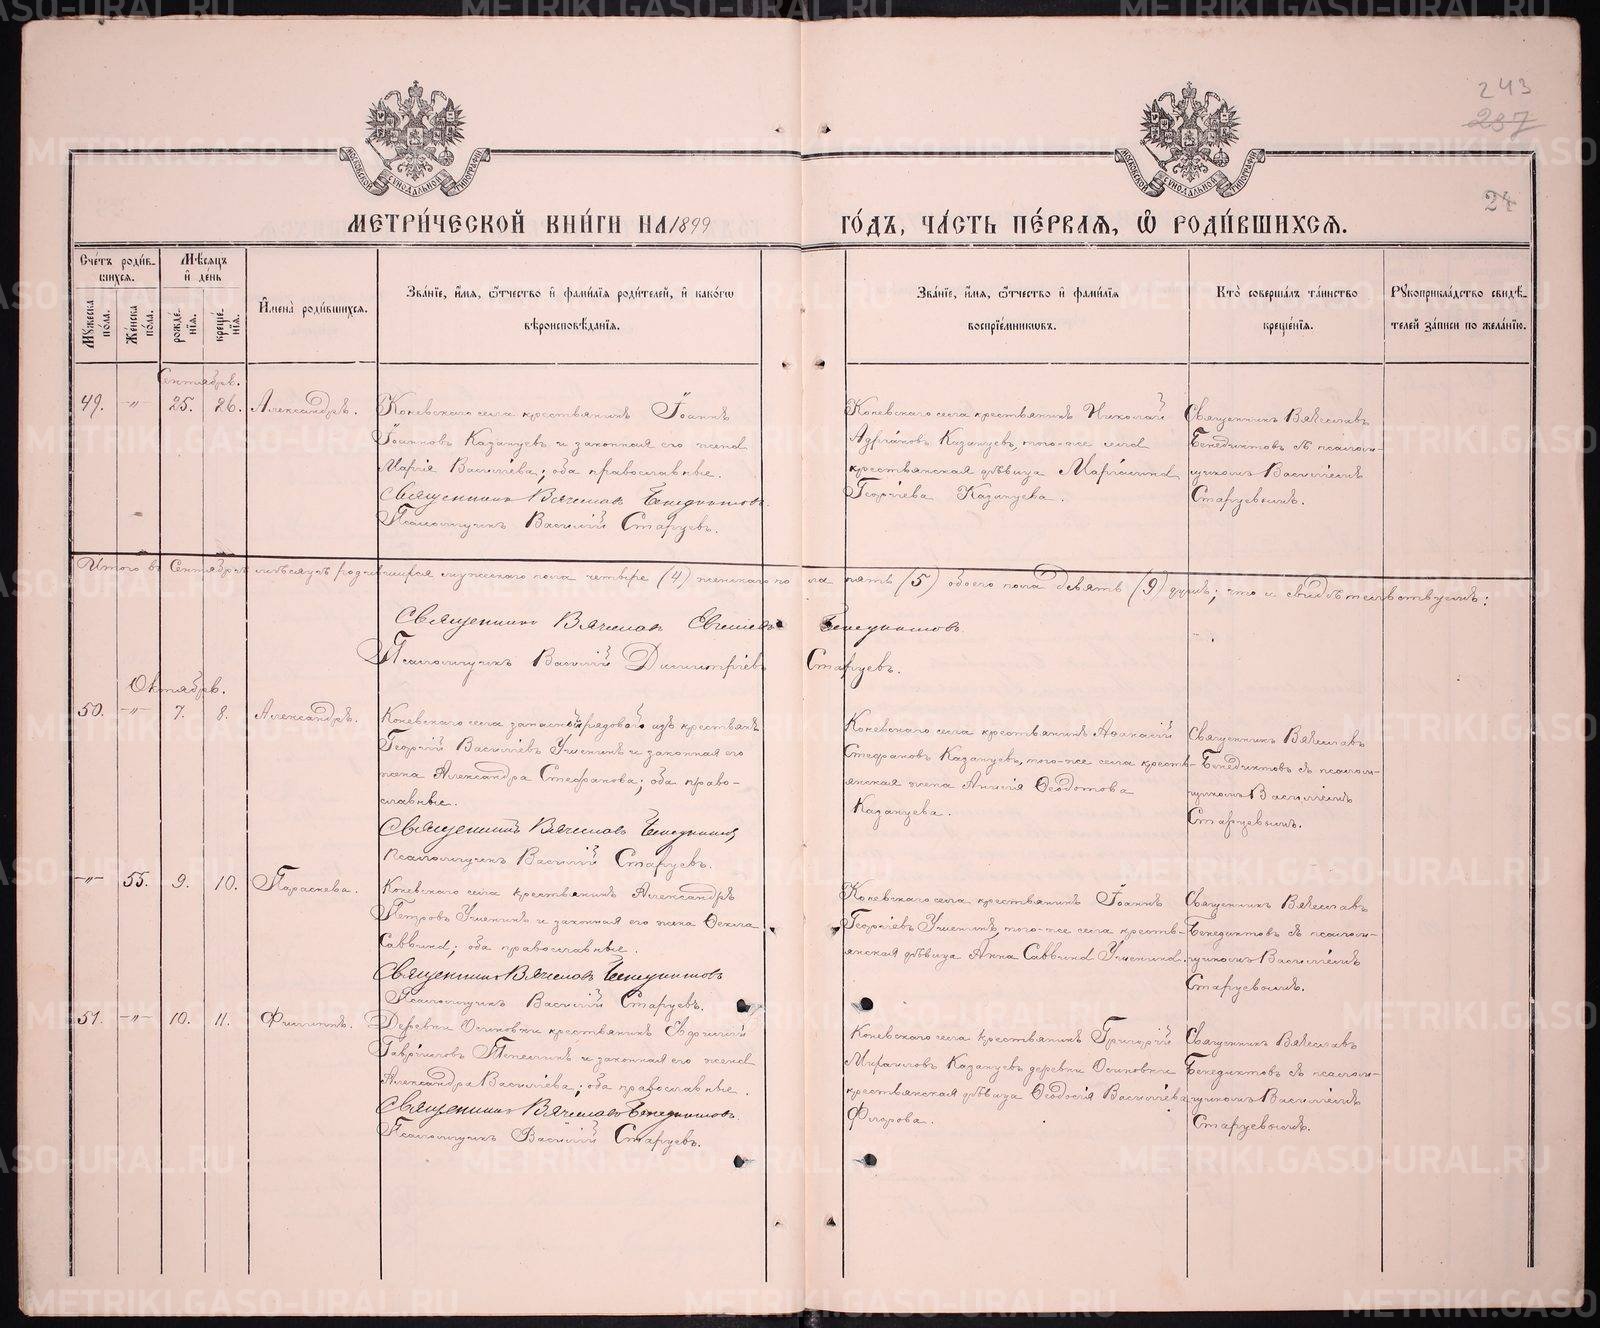 243
237
24
МЕТРИЧЕСКОЙ КНИГИ НА 1899 ГОДЪ, ЧАСТЬ ПЕРВАЯ, Ѡ РОДИВШИХСЯ.
Счетъ родившихся.
Мужеска пола.
Женска пола.
Мѣсяцъ и день
рожденія.
крещенія.
Имена родившихся.
Званіе, имя, отчество и фамилія родителей, и какогѡ
вѣроисповѣданія.
Званіе, имя, отчество и фамилія
воспріемниковъ.
Кто совершалъ таинство
крещенія.
Рукоприкладство свидѣ-
телей записи по желанію.
Сентябрь.
49. -"- 25. 26. Александръ.
Коневскаго села крестьянинъ Іоаннъ
Іоанновъ Казанцевъ и законная его жена
Марія Васильева; оба православные.
Священникъ Вячеславъ Бенедиктовъ.
Псаломщикъ Василій Старцевъ.
Коневскаго села крестьянинъ Николай
Адріановъ Казанцевъ, того-же села
крестьянская дѣвица Маріанна
Георгіева Казанцева.
Священникъ Вячеславъ
Бенедиктовъ съ псалом-
щикомъ Василіемъ
Старцевымъ.
Итого въ Сентябрѣ мѣсяцѣ родившихся мужескаго пола четыре (4) женскаго пола пять (5) обоего пола девять (9) душъ; что и свидѣтельствуемъ:
Священникъ Вячеславъ Евгеніевъ Бенедиктовъ.
Псаломщикъ Василій Димитріевъ Старцевъ.
Октябрь.
50. -"- 7. 8. Александръ.
Коневскаго села запасный рядовой изъ крестьянъ
Георгій Васильевъ Ушенинъ и законная его
жена Александра Стефанова; оба право-
славные.
Священникъ Вячеславъ Бенедиктовъ
Псаломщикъ Василій Старцевъ.
Коневскаго села крестьянинъ Афанасій
Стефановъ Казанцевъ, того-же села кресть-
янская жена Анисія Ѳеодотова
Казанцева.
Священникъ Вячеславъ
Бенедиктовъ съ псалом-
щикомъ Василіемъ
Старцевымъ.
-"- 55. 9. 10. Параскева.
Коневскаго села крестьянинъ Александръ
Петровъ Ушенинъ и законная его жена Ѳекла
Саввина; оба православные.
Священникъ Вячеславъ Бенедиктовъ
Псаломщикъ Василій Старцевъ.
Коневскаго села крестьянинъ Іоаннъ
Георгіевъ Ушенинъ, того-же села кресть-
янская дѣвица Анна Саввина Ушенина.
Священникъ Вячеславъ
Бенедиктовъ съ псалом-
щикомъ Василіемъ
Старцевымъ.
51. -"- 10. 11. Филиппъ.
Деревни Осиновки крестьянинъ
Гавріиловъ и законная его жена
Александра Васильева; оба православные.
Священникъ Вячеславъ Бенедиктовъ.
Псаломщикъ Василій Старцевъ.
Коневскаго села крестьянинъ Григорій
Михаиловъ Казанцевъ деревни Осиновки
крестьянская дѣвица Ѳеодосія Васильева
Священникъ Вячеславъ
Бенедиктовъ съ псалом-
щикомъ Василіемъ
Старцевымъ.
METRIKI.GASO-URAL.RU